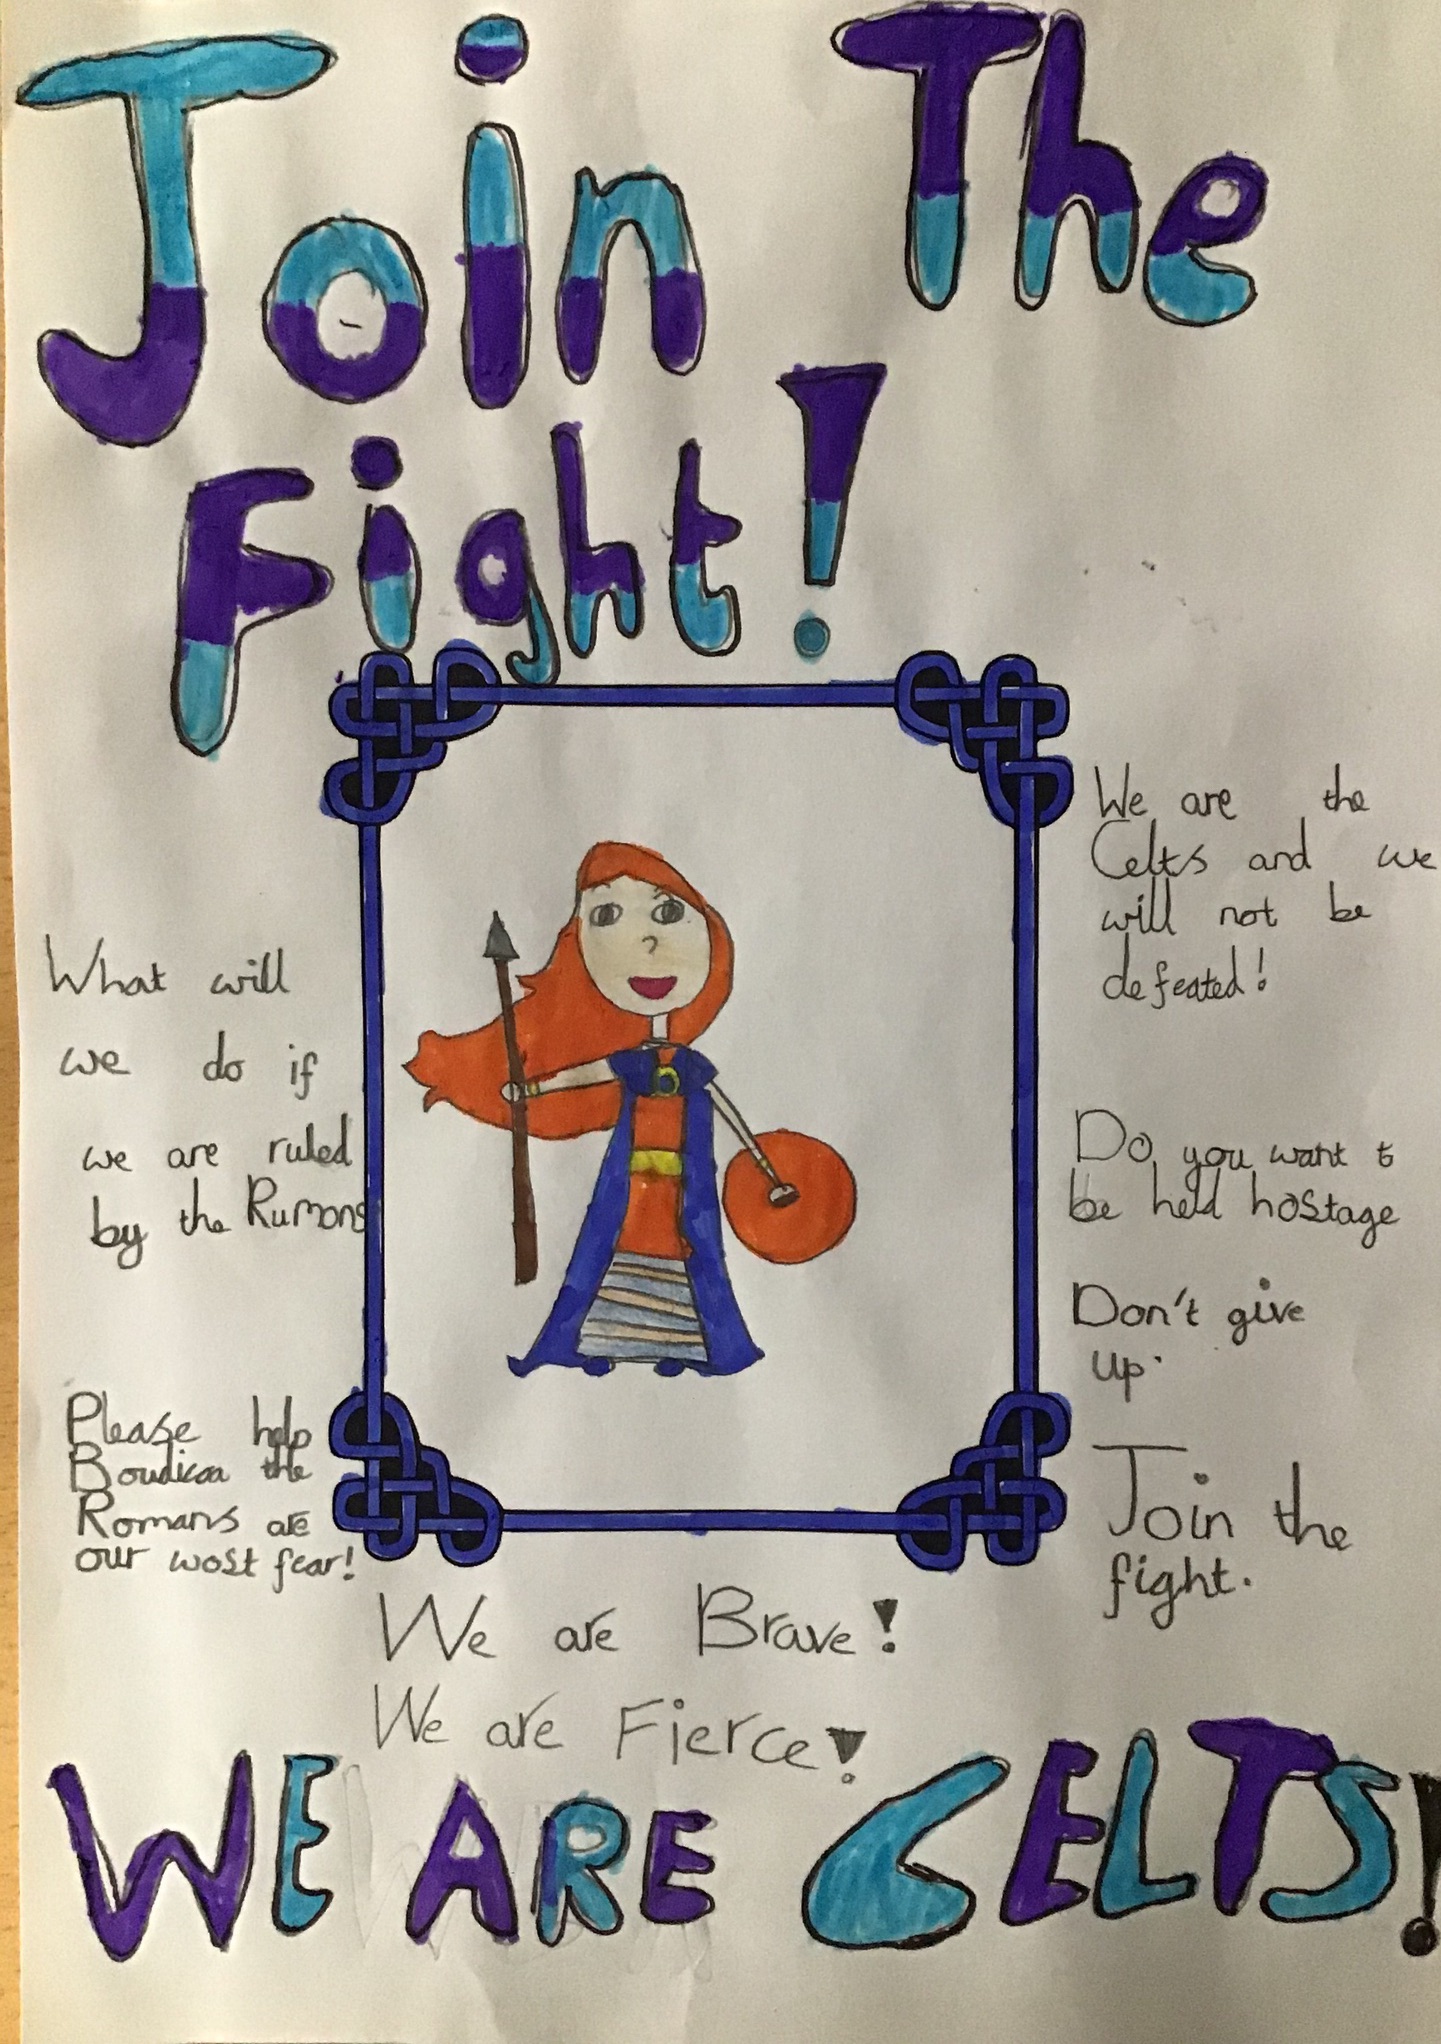 Join The
Fight!
What will
we do if
we are ruled
by the Rumons
Please help
Boudicaa the
Romans are
our wost fear!
We are the
Celts and we
will not be
defeated!
Do you want to
be held hostage
Don't give
up.
Join the
fight.
We are Brave!
We are Fierce!
WE ARE CELTS!